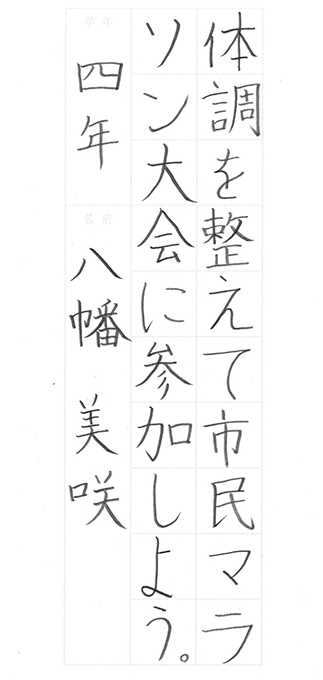 体調を整えて市民マラ
ソン大会に参加しよう。
学年
四年
名前
八幡 美咲